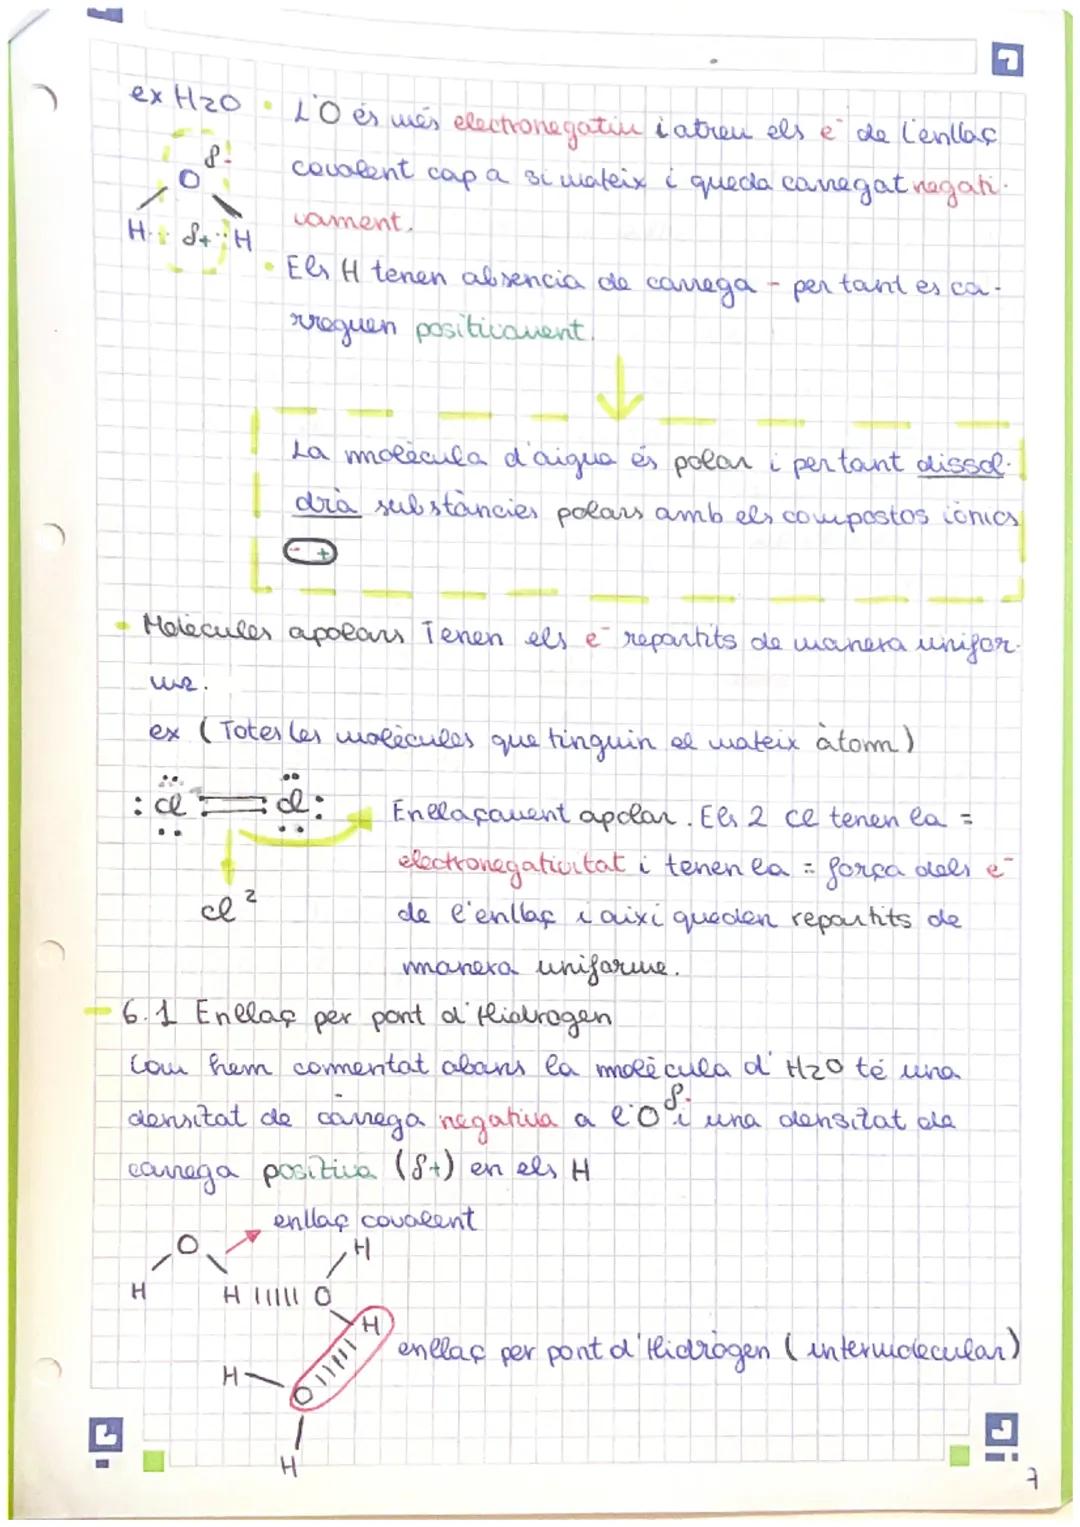 ex H2O • L'O és més electronegatiu i atreu els e⁻ de l'enllaç
covalent cap a si mateix i queda carregat negati-
vament.
δ-
O
H δ+ H
• Els H tenen absencia de carrega - per tant es ca-
rreguen positivament.
La molècula d'aigua és polar i per tant dissol-
drà substàncies polars amb els compostos iònics
- +
• Molècules apolars Tenen els e⁻ repartits de manera unifor-
me.
ex (Totes les molècules que tinguin el mateix àtom)
Cl Cl
Enllaçament apolar. Els 2 Cl tenen la =
electronegativitat i tenen la = força dels e⁻
Cl²
de l'enllaç i així queden repartits de
manera uniforme.
- 6.1 Enllaç per pont d'Hidrogen
Com hem comentat abans la molècula d'H2O té una
densitat de càrrega negativa a l'O δ- i una densitat de
carrega positiva (δ+) en els H
enllaç covalent
O H
H H O
H
enllaç per pont d'Hidrògen (intermolecular)
H O
H
7